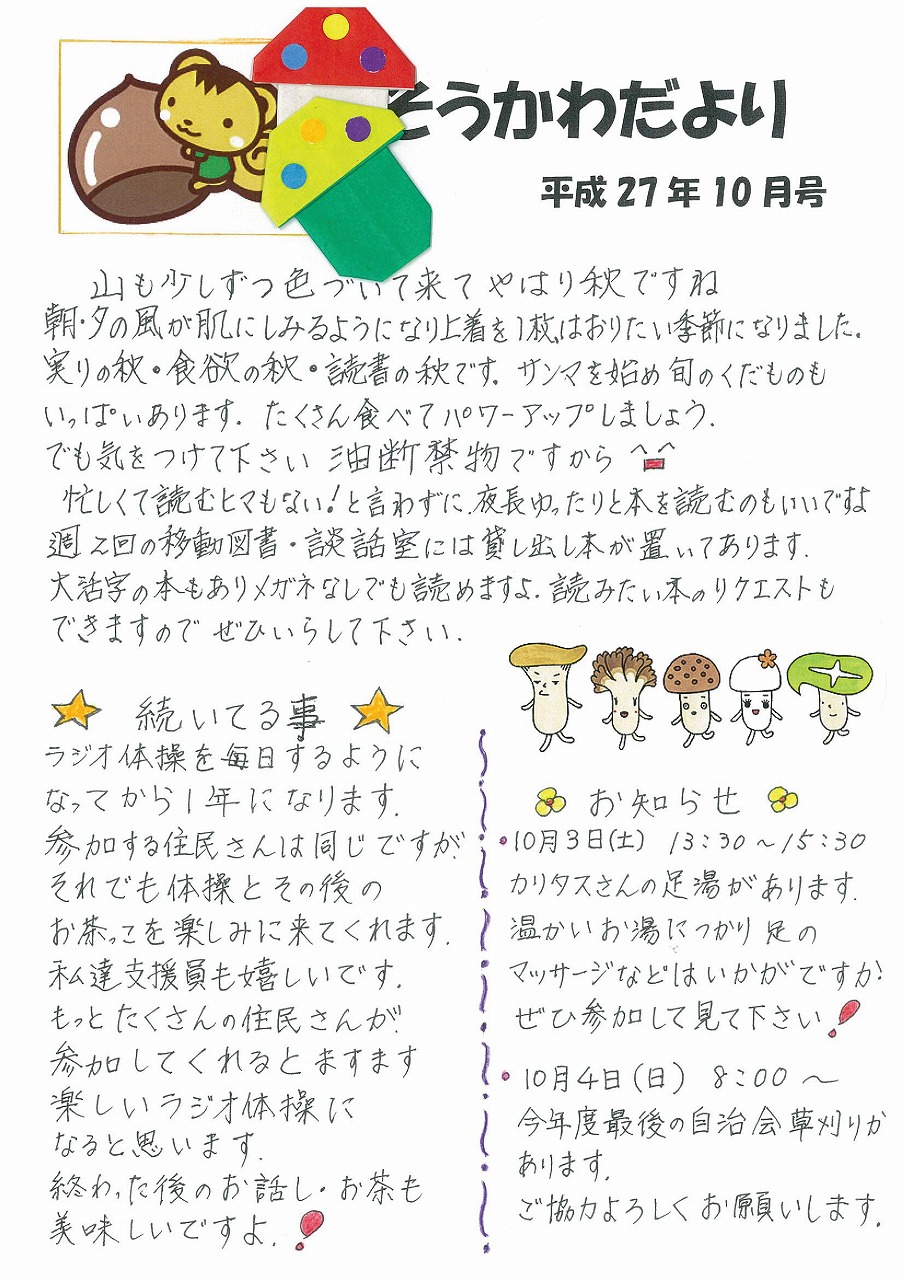 そうかわだより
平成27年10月号
山も少しずつ色づいて来てやはり秋ですね
朝・夕の風が肌にしみるようになり上着を1枚はおりたい季節になりました。
実りの秋・食欲の秋・読書の秋です。サンマを始め旬のくだものも
いっぱいあります。たくさん食べてパワーアップしましょう.
でも気をつけて下さい 油断禁物ですから
忙しくて読むヒマもない！と言わずに、夜長ゆったりと本を読むのもいいですよ
週2回の移動図書・談話室には貸し出し本が置いてあります.
大活字の本もありメガネなしでも読めますよ.読みたい本のリクエストも
できますので ぜひいらして下さい.
続いてる事
ラジオ体操を毎日するように
なってから1年になります.
参加する住民さんは同じですが
それでも体操とその後の
お茶っこを楽しみに来てくれます.
私達支援員も嬉しいです.
もっとたくさんの住民さんが
参加してくれるとますます
楽しいラジオ体操に
なると思います.
終わった後のお話し・お茶も
美味しいですよ.！
お知らせ
・10月3日(土) 13:30～15:30
カリタスさんの足湯があります.
温かいお湯につかり足の
マッサージなどはいかがですか？
ぜひ参加して見て下さい！
・10月4日(日) 8:00～
今年度最後の自治会草刈りが
あります.
ご協力よろしくお願いします.